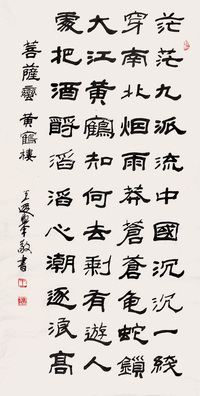 茫茫九派流中國沉沉一綫
穿南北烟雨莽蒼蒼龜蛇鎖
大江黃鶴知何去剩有遊人
處把酒酹滔滔心潮逐浪高
菩薩蠻 黃鶴樓 王遐舉敬書